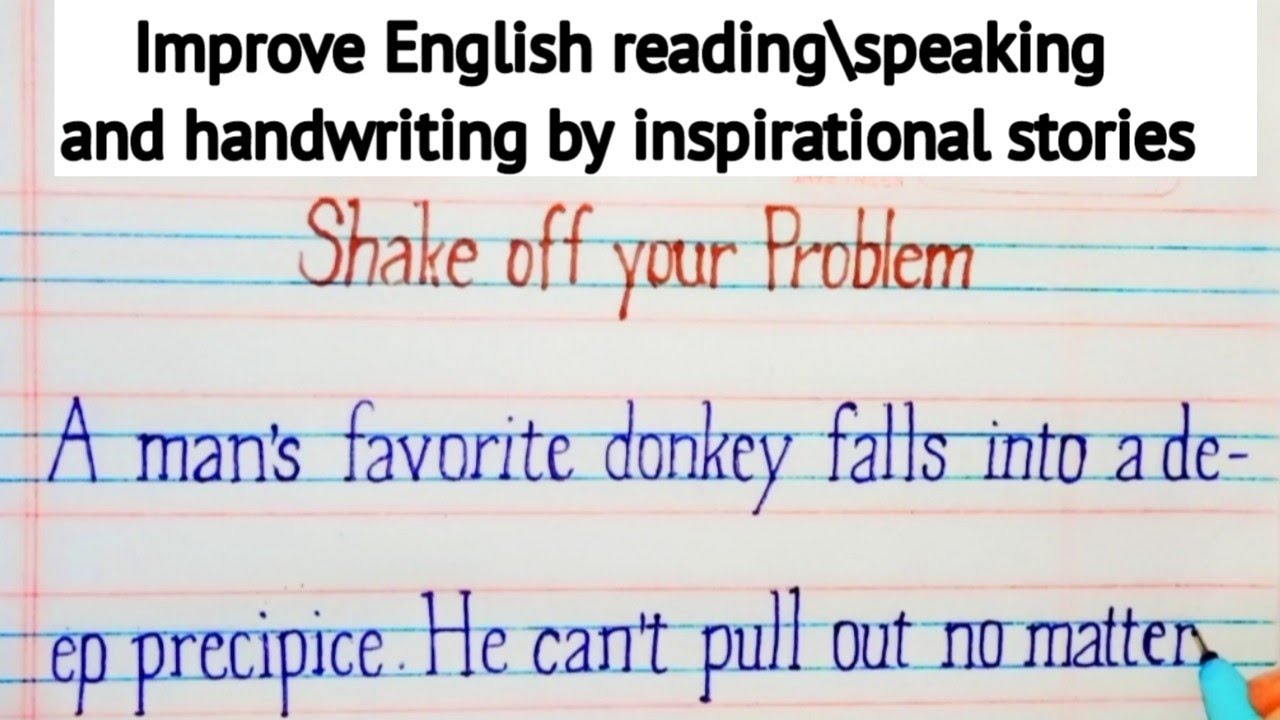 Improve English reading\speaking
and handwriting by inspirational stories
Shake off your Problem
A man's favorite donkey falls into a de-
ep precipice. He can't pull out no matter